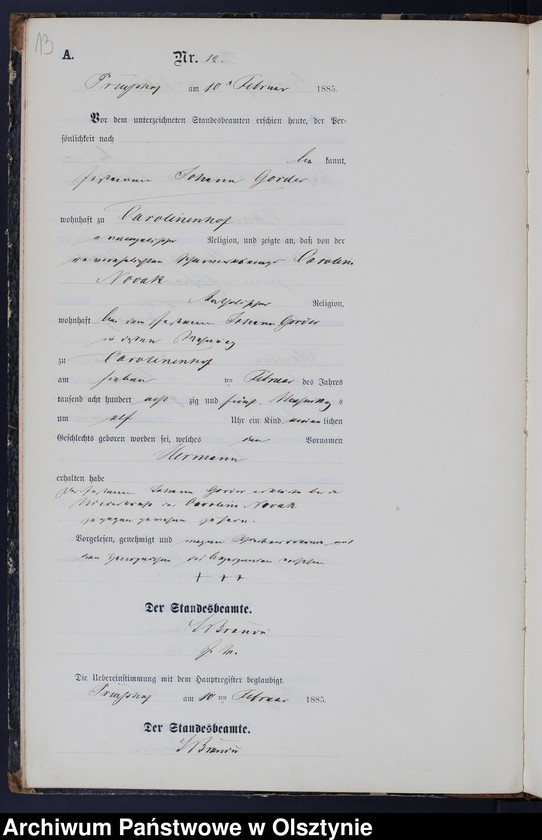 13
A.
Nr. 12.
am 10ten Februar 1885.
Vor dem unterzeichneten Standesbeamten erschien heute, der Per-
sönlichkeit nach
be kannt,
Johann Gorder
wohnhaft zu Carolinenhof
evangelischer Religion, und zeigte an, daß von der
unverehelichten Caroline
Novak
katholischer Religion,
wohnhaft bei dem Johann Gorder
in dessen Wohnung
zu Carolinenhof
am sieben ten Februar des Jahres
tausend acht hundert acht zig und fünf Vormittags
um elf Uhr ein Kind männlichen
Geschlechts geboren worden sei, welches den Vornamen
Hermann
erhalten habe
Johann Gorder erklärte bei der
Niederkunft der Caroline Novak
zugegen gewesen zu sein.
Vorgelesen, genehmigt und wegen
+++
Der Standesbeamte.
Die Uebereinstimmung mit dem Hauptregister beglaubigt.
am 10 ten Februar 1885.
Der Standesbeamte.
Archiwum Państwowe w Olsztynie